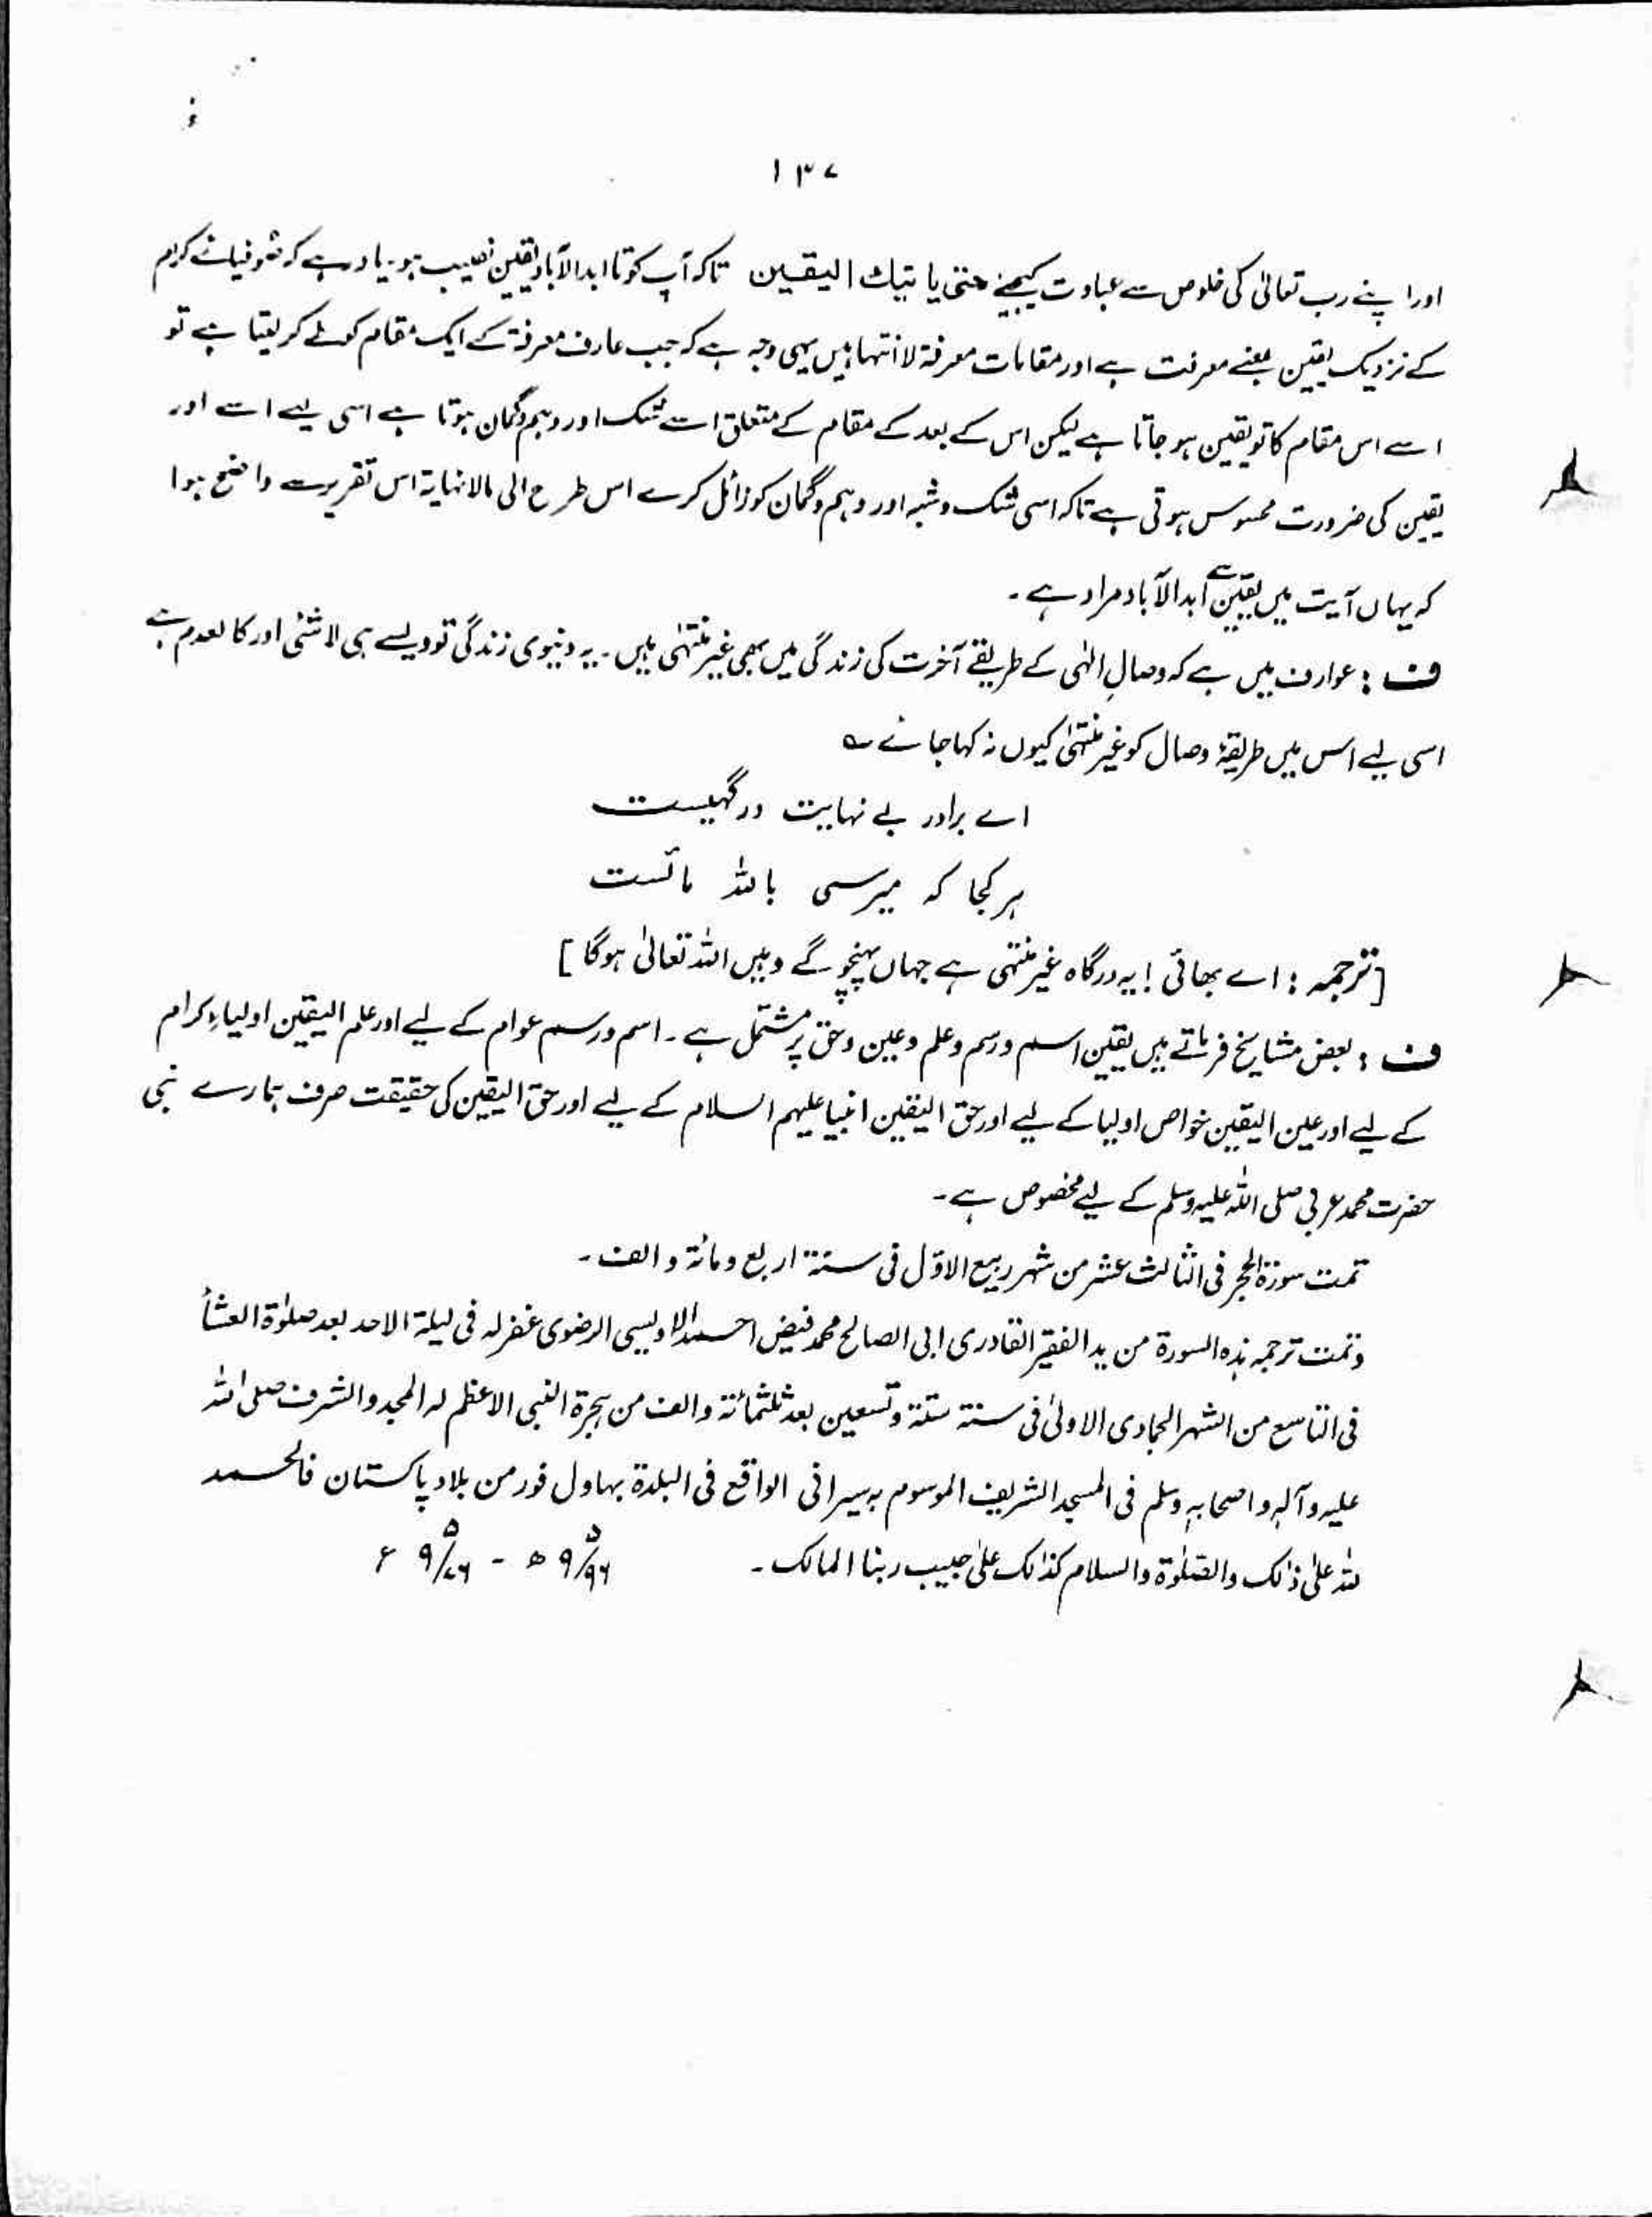 ۱۳۷
اور اپنے رب تعالیٰ کی خلوص سے عبادت کیجیے حتی یاتیك الیقین تاکہ آپ کو تا ابد الآباد یقین نصیب ہو۔ یاد رہے کہ صوفیائے کرام
کے نزدیک یقین بمعنے معرفت ہے اور مقامات معرفۃ لا انتہا ہیں یہی وجہ ہے کہ جب عارف معرفۃ کے ایک مقام کو طے کر لیتا ہے تو
اسے اس مقام کا تو یقین ہو جاتا ہے لیکن اس کے بعد کے مقام کے متعلق اسے شک اور وہم و گمان ہوتا ہے اسی لیے اسے اور
یقین کی ضرورت محسوس ہوتی ہے تاکہ اسی شک و شبہ اور وہم و گمان کو زائل کرے اس طرح الی مالانہایۃ اس تقریر سے واضح ہوا
کہ یہاں آیت میں یقین سے ابدالآباد مراد ہے۔
ف : عوارف میں ہے کہ وصالِ الٰہی کے طریقے آخرت کی زندگی میں بھی غیر منتہٰی ہیں۔ یہ دنیوی زندگی تو ویسے ہی لاشئی اور کالعدم ہے
اسی لیے اس میں طریقۂ وصال کو غیر منتہیٰ کیوں نہ کہا جائے ؎
اے برادر بے نہایت درگہیست
ہر کجا کہ میرسی باللہ مائست
[ترجمہ : اے بھائی ! یہ درگاہ غیر منتہی ہے جہاں پہنچو گے وہیں اللہ تعالیٰ ہوگا]
ف : بعض مشایخ فرماتے ہیں یقین اسم و رسم و علم و عین و حق پر مشتمل ہے۔ اسم و رسم عوام کے لیے اور علم الیقین اولیاءِ کرام
کے لیے اور عین الیقین خواص اولیا کے لیے اور حق الیقین انبیا علیہم السلام کے لیے اور حق الیقین کی حقیقت صرف ہمارے نبی
حضرت محمد عربی صلی اللہ علیہ وسلم کے لیے مخصوص ہے۔
تمت سورۃ الحجر فی الثالث عشر من شہر ربیع الاوّل فی سنۃ اربع ومائۃ و الف۔
وتمت ترجمہ ہٰذہ السورۃ من ید الفقیر القادری ابی الصالح محمد فیض احمد الاویسی الرضوی غفرلہ فی لیلۃ الاحد بعد صلوٰۃ العشأ
فی التاسع من الشہر الجمادی الاولیٰ فی سنۃ ستۃ وتسعین بعد ثلثمائۃ والف من ہجرۃ النبی الاعظم لہ المجد والشرف صلی اللہ
علیہ وآلہٖ واصحابہٖ وسلم فی المسجد الشریف الموسوم بہ سیرانی الواقع فی البلدۃ بہاول فور من بلاد پاکستان فالحمد
للہ علیٰ ذالک والصّلوٰۃ والسلام کذالک علیٰ حبیب ربنا المالک۔ ۹/۵/۹۶ ھ - ۹/۵/۷۶ ء